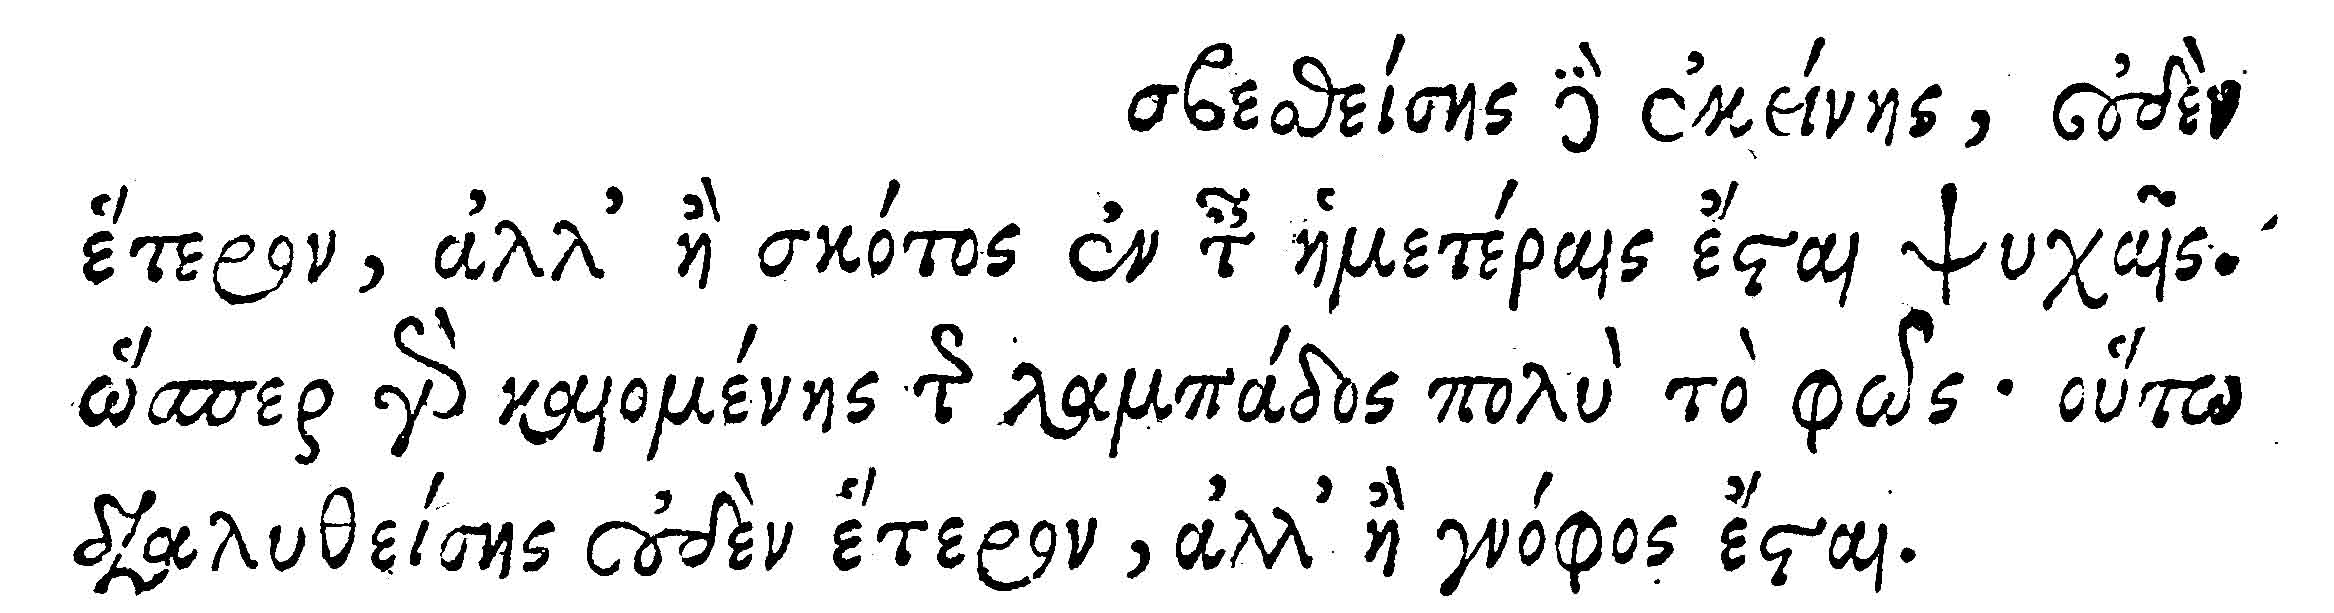 σβεσθείσης δὲ ἐκείνης, οὐδὲν
ἕτερον, ἀλλ' ἢ σκότος ἐν ταῖς ἡμετέραις ἔσται ψυχαῖς.
ὥσπερ γὰρ καιομένης τῆς λαμπάδος πολὺ τὸ φῶς· οὕτω
διαλυθείσης οὐδὲν ἕτερον, ἀλλ' ἢ γνόφος ἔσται.